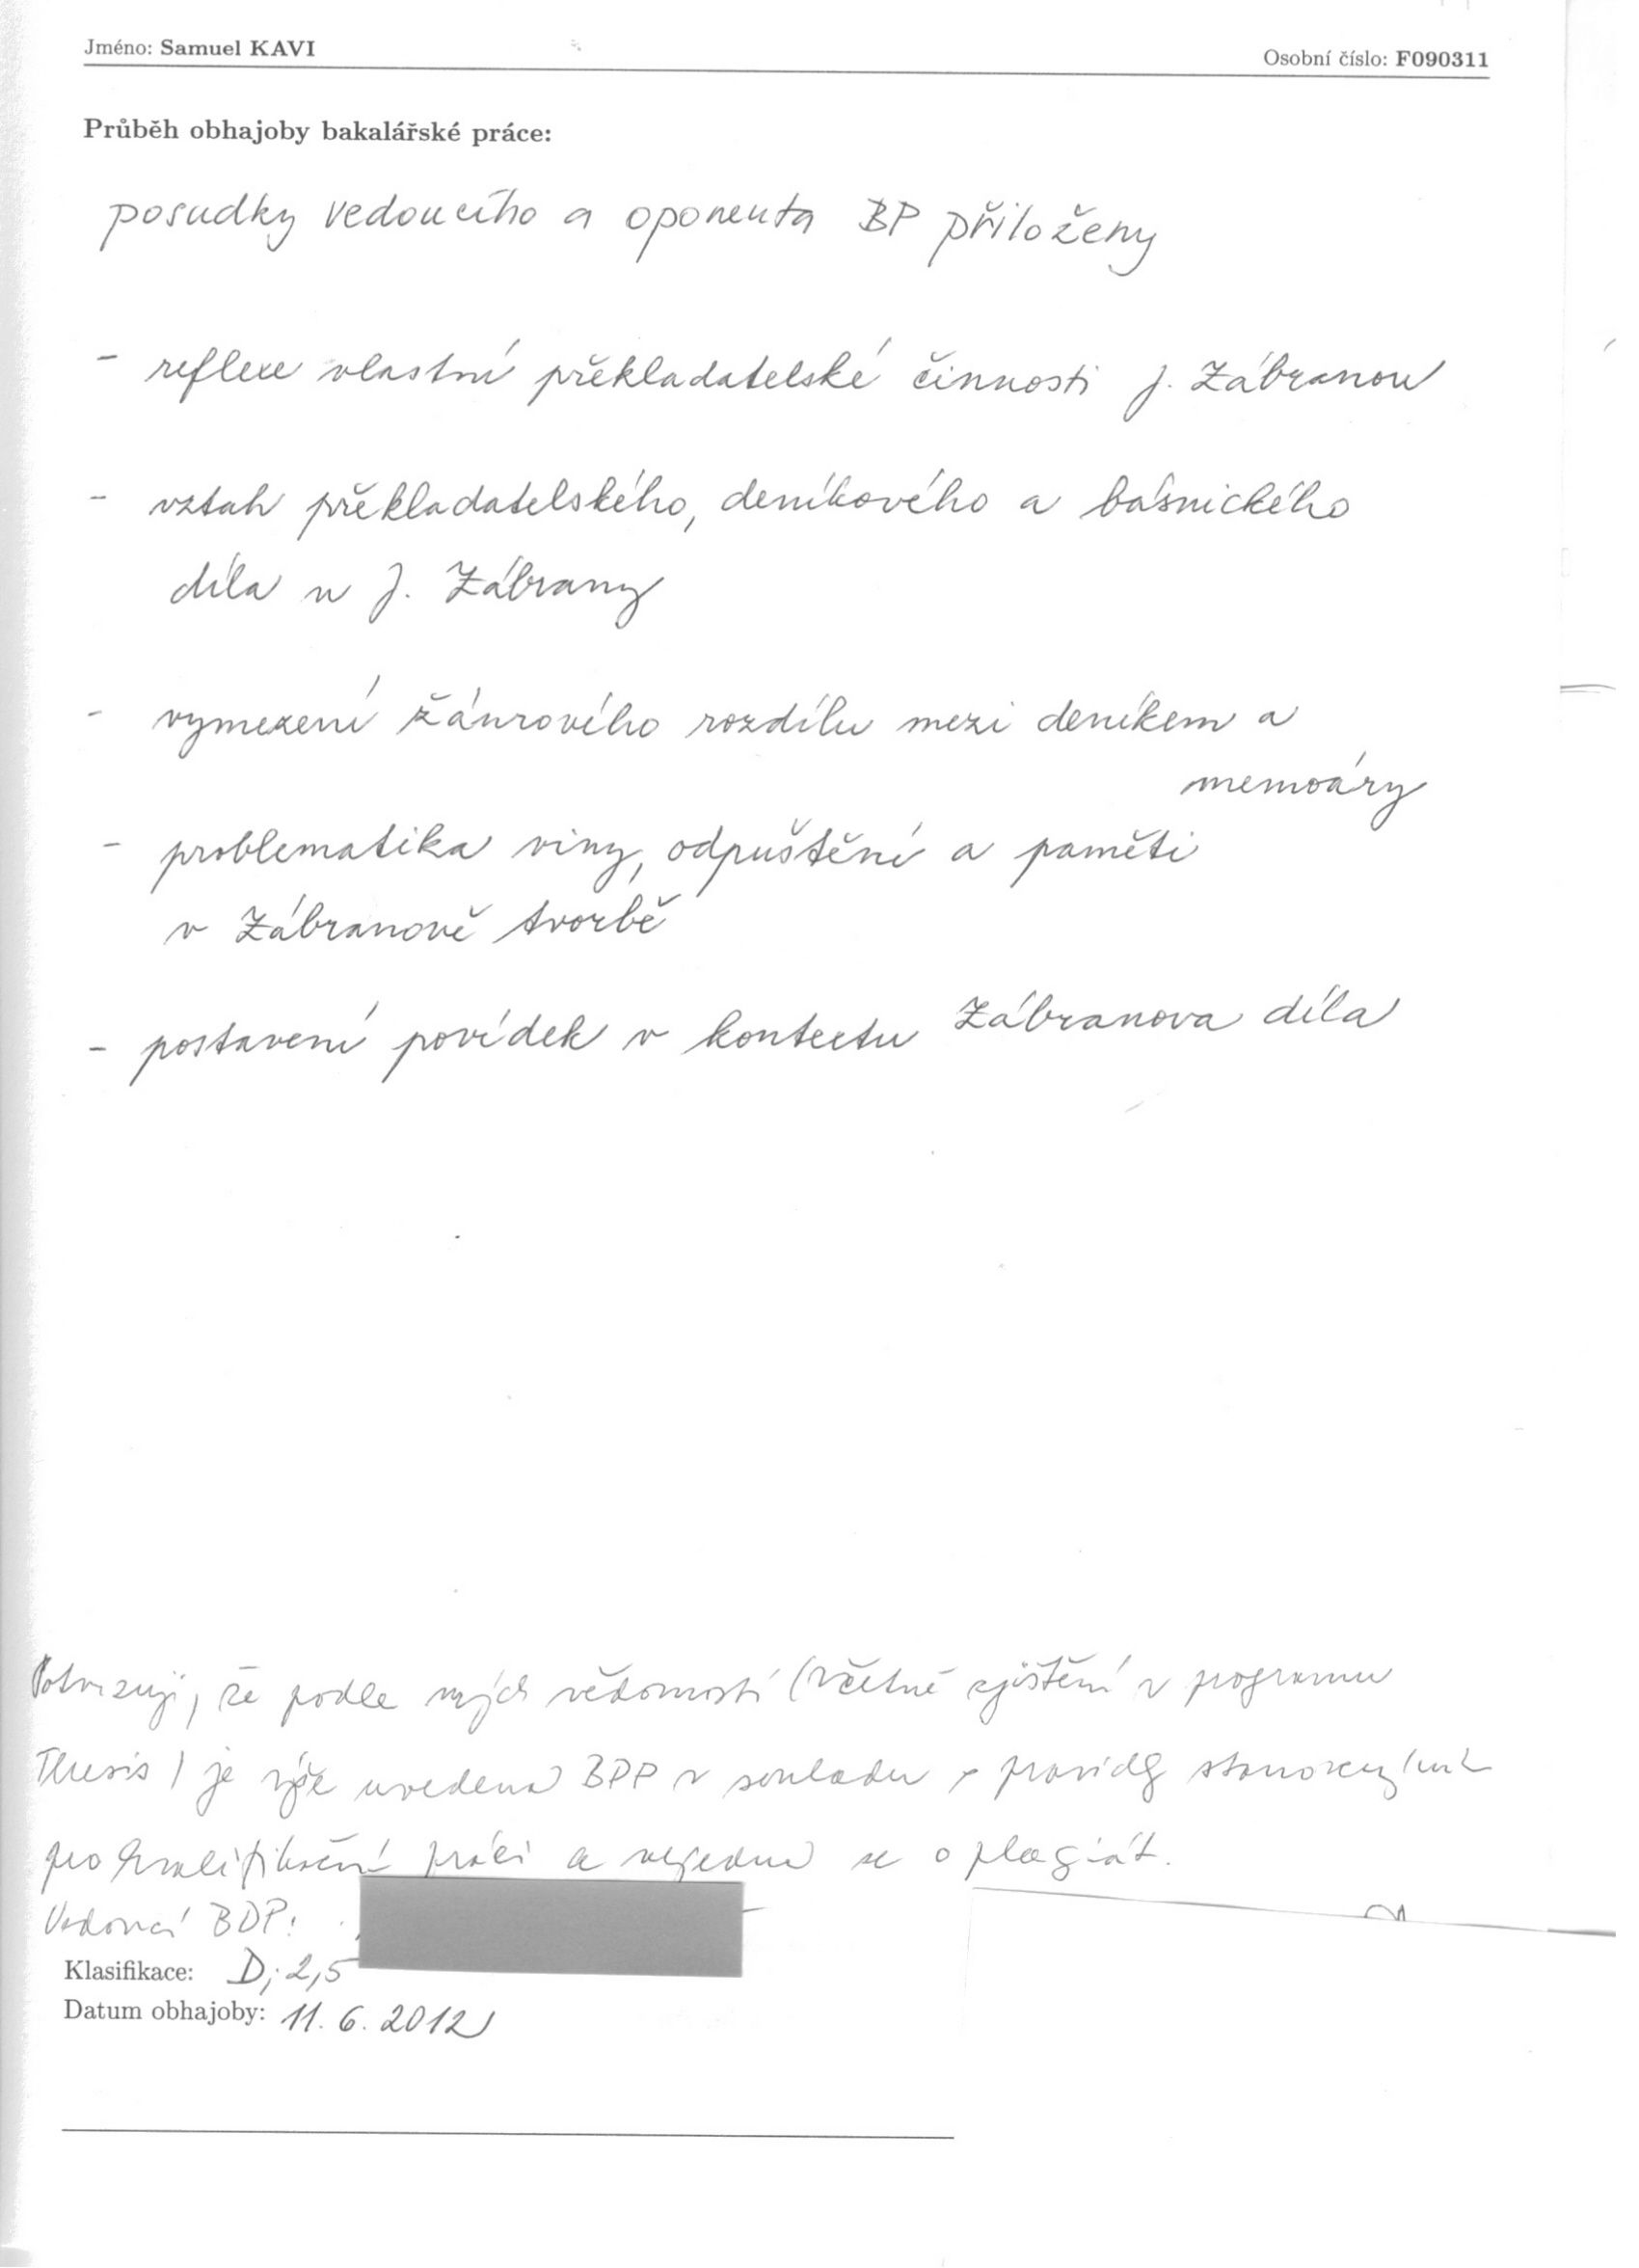 Jméno: Samuel KAVI
Osobní číslo: F090311
Průběh obhajoby bakalářské práce:
posudky vedoucího a oponenta BP přiloženy
- reflexe vlastní překladatelské činnosti J. Zábranou
- vztah překladatelského, deníkového a básnického
díla u J. Zábrany
- vymezení žánrového rozdílu mezi deníkem a
memoáry
- problematika viny, odpuštění a paměti
v Zábranově tvorbě
- postavení povídek v kontextu Zábranova díla
Potvrzuji, že podle mých vědomostí (včetně zjištění v programu
Thesis) je výše uvedená BPP v souladu s pravidly stanovenými
pro kvalifikační práci a nejedná se o plagiát.
Vedoucí BDP:
Klasifikace: D; 2,5
Datum obhajoby: 11. 6. 2012